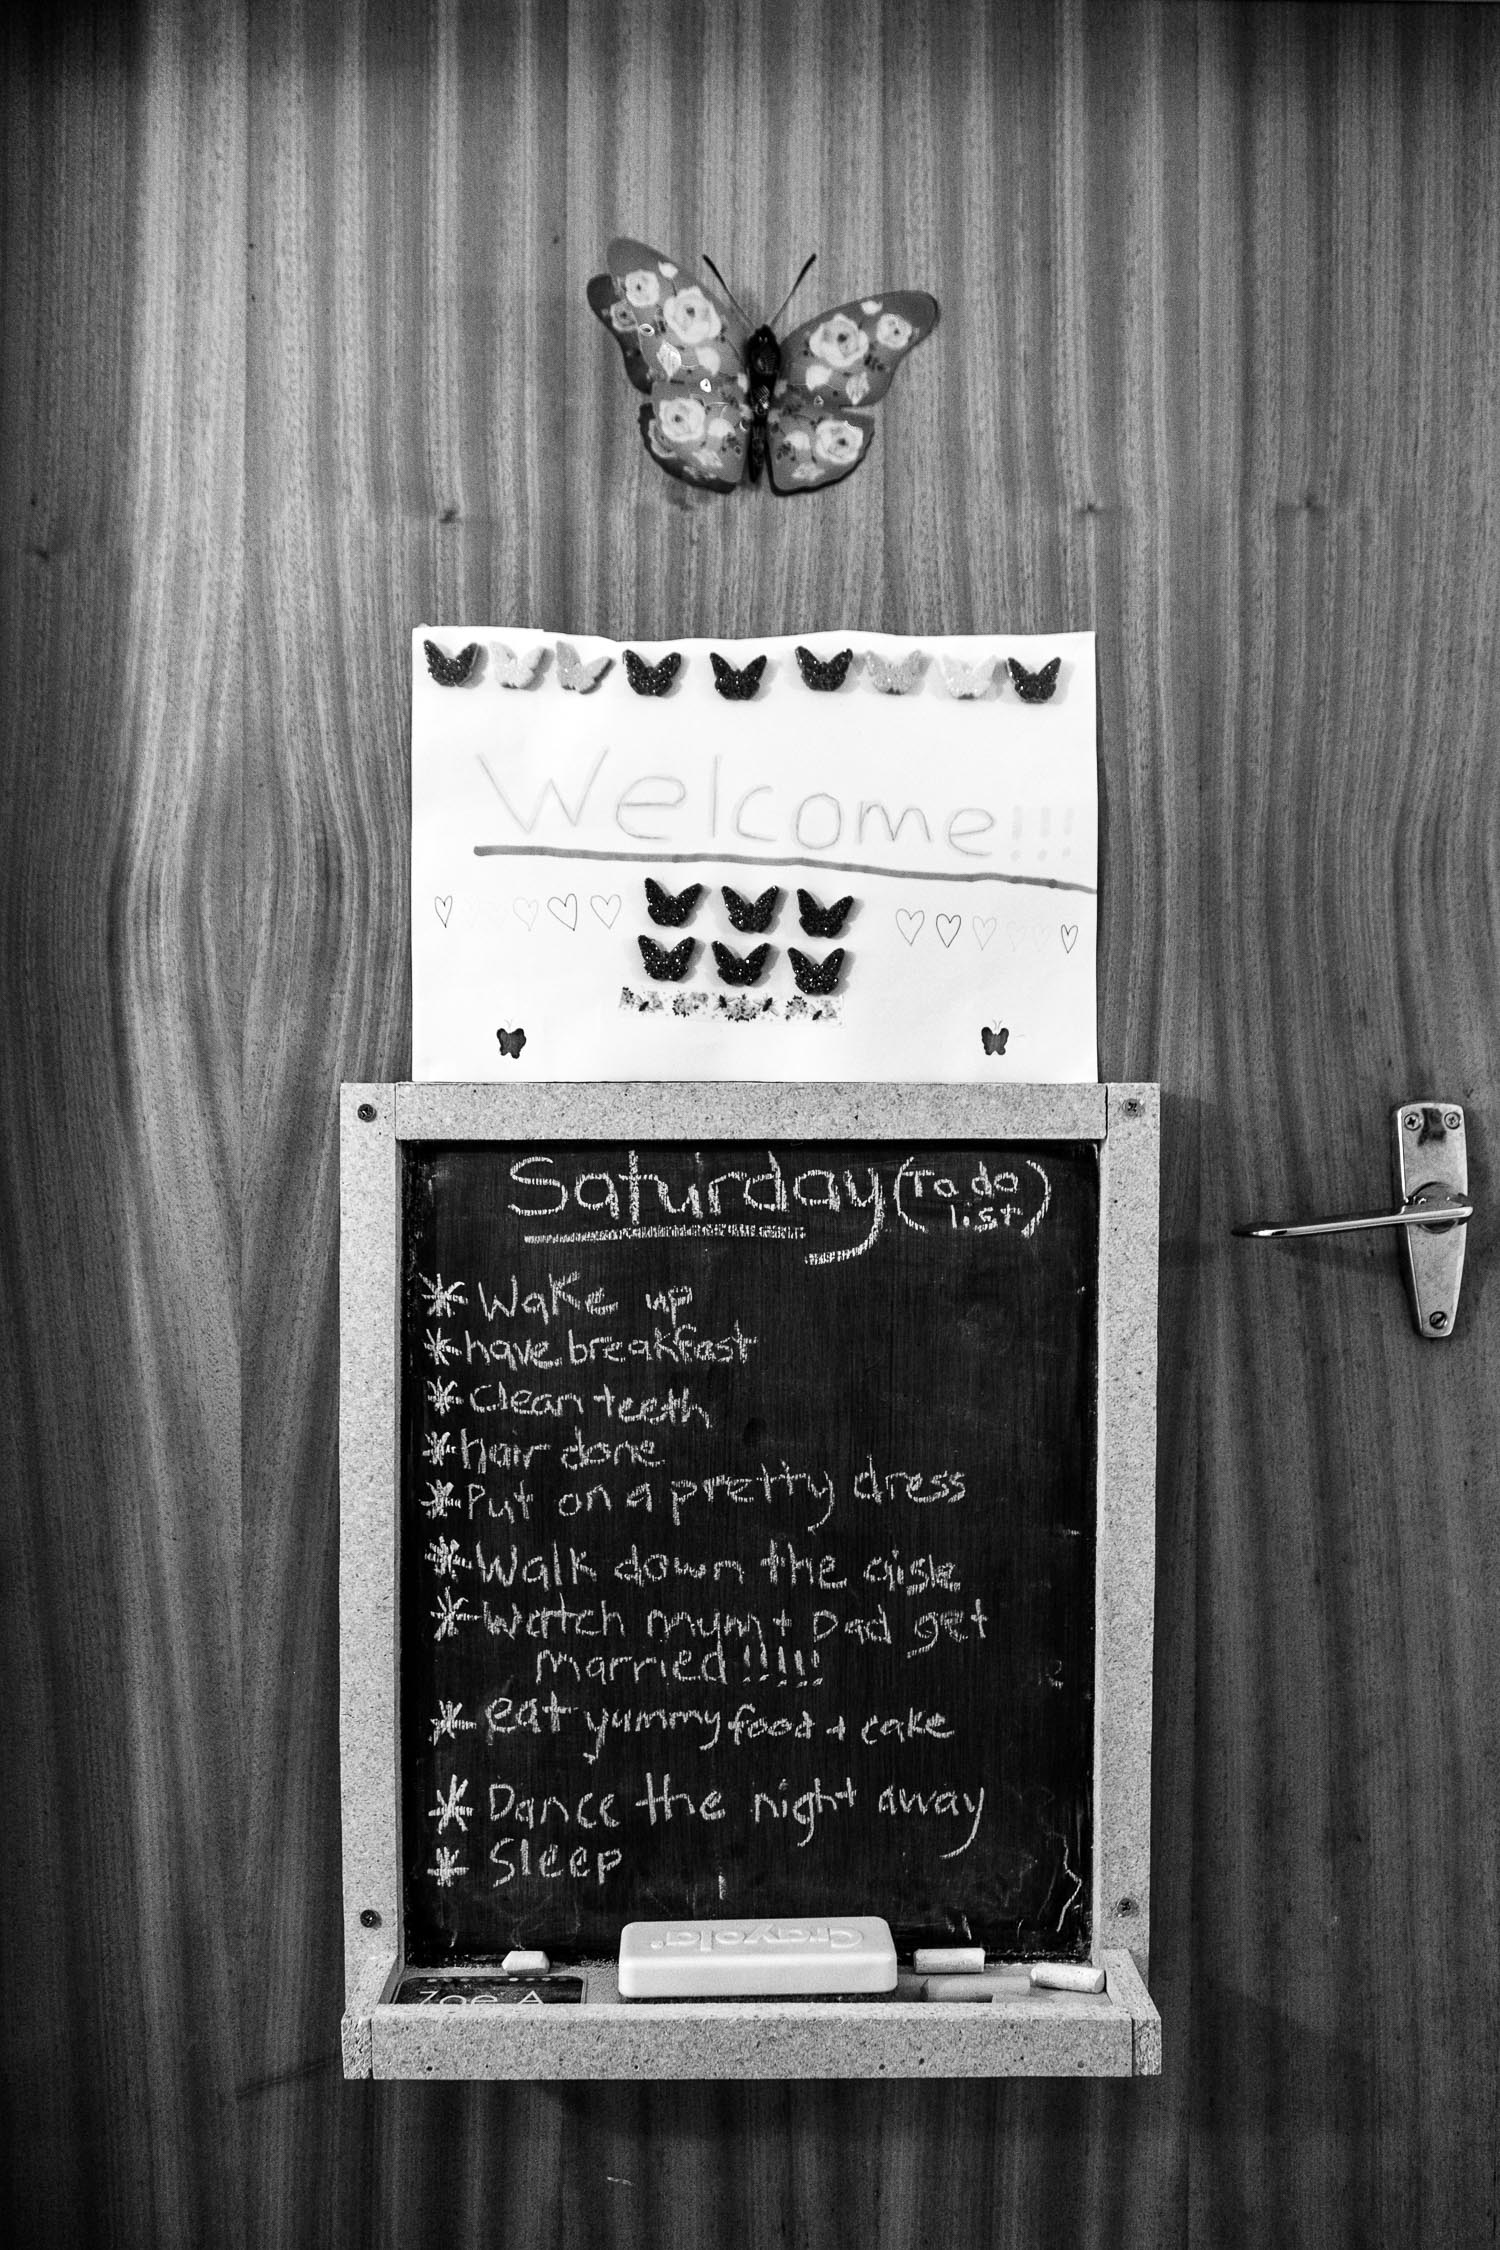 Welcome!!!
Saturday (To do
list)
* Wake up
* have breakfast
* Clean teeth
* hair done
* Put on a pretty dress
* Walk down the aisle
* Watch mym + Dad get
married!!!!!
* eat yummy food + cake
* Dance the night away
* Sleep
Crayola
Zoe A